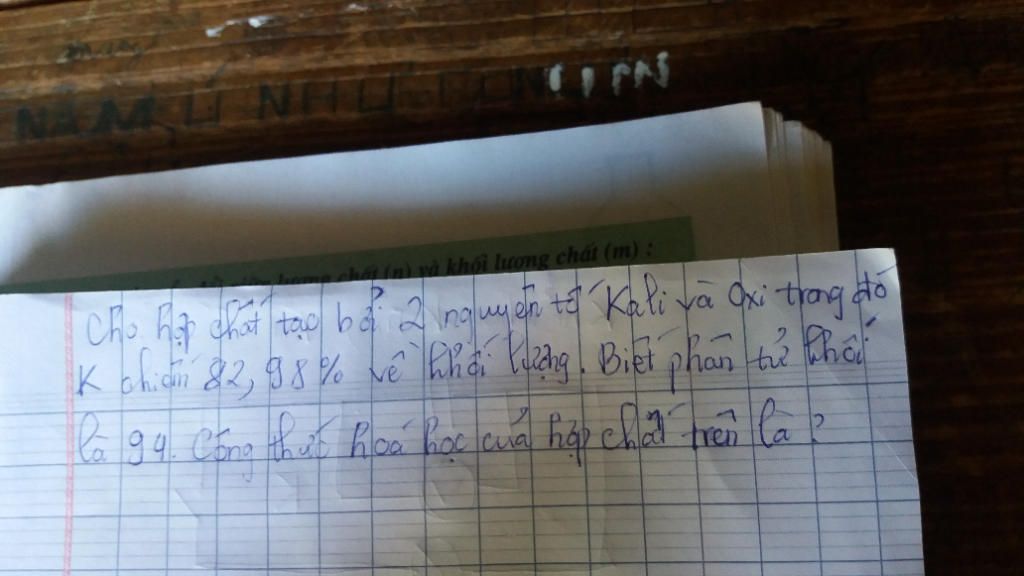 NĂM Ú NHƯ
lượng chất (n) và khối lượng chất (m) :
Cho hợp chất tạo bởi 2 nguyên tố Kali và Oxi trong đó
K chiếm 82,98% về khối lượng. Biết phân tử khối
là 94. Công thức hoá học của hợp chất trên là ?